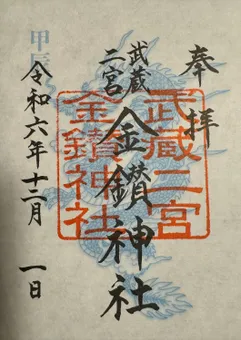 奉拝
武蔵
二宮
金鑚神社
令和六年十二月 一日
甲辰
武蔵二宮
金鑚神社